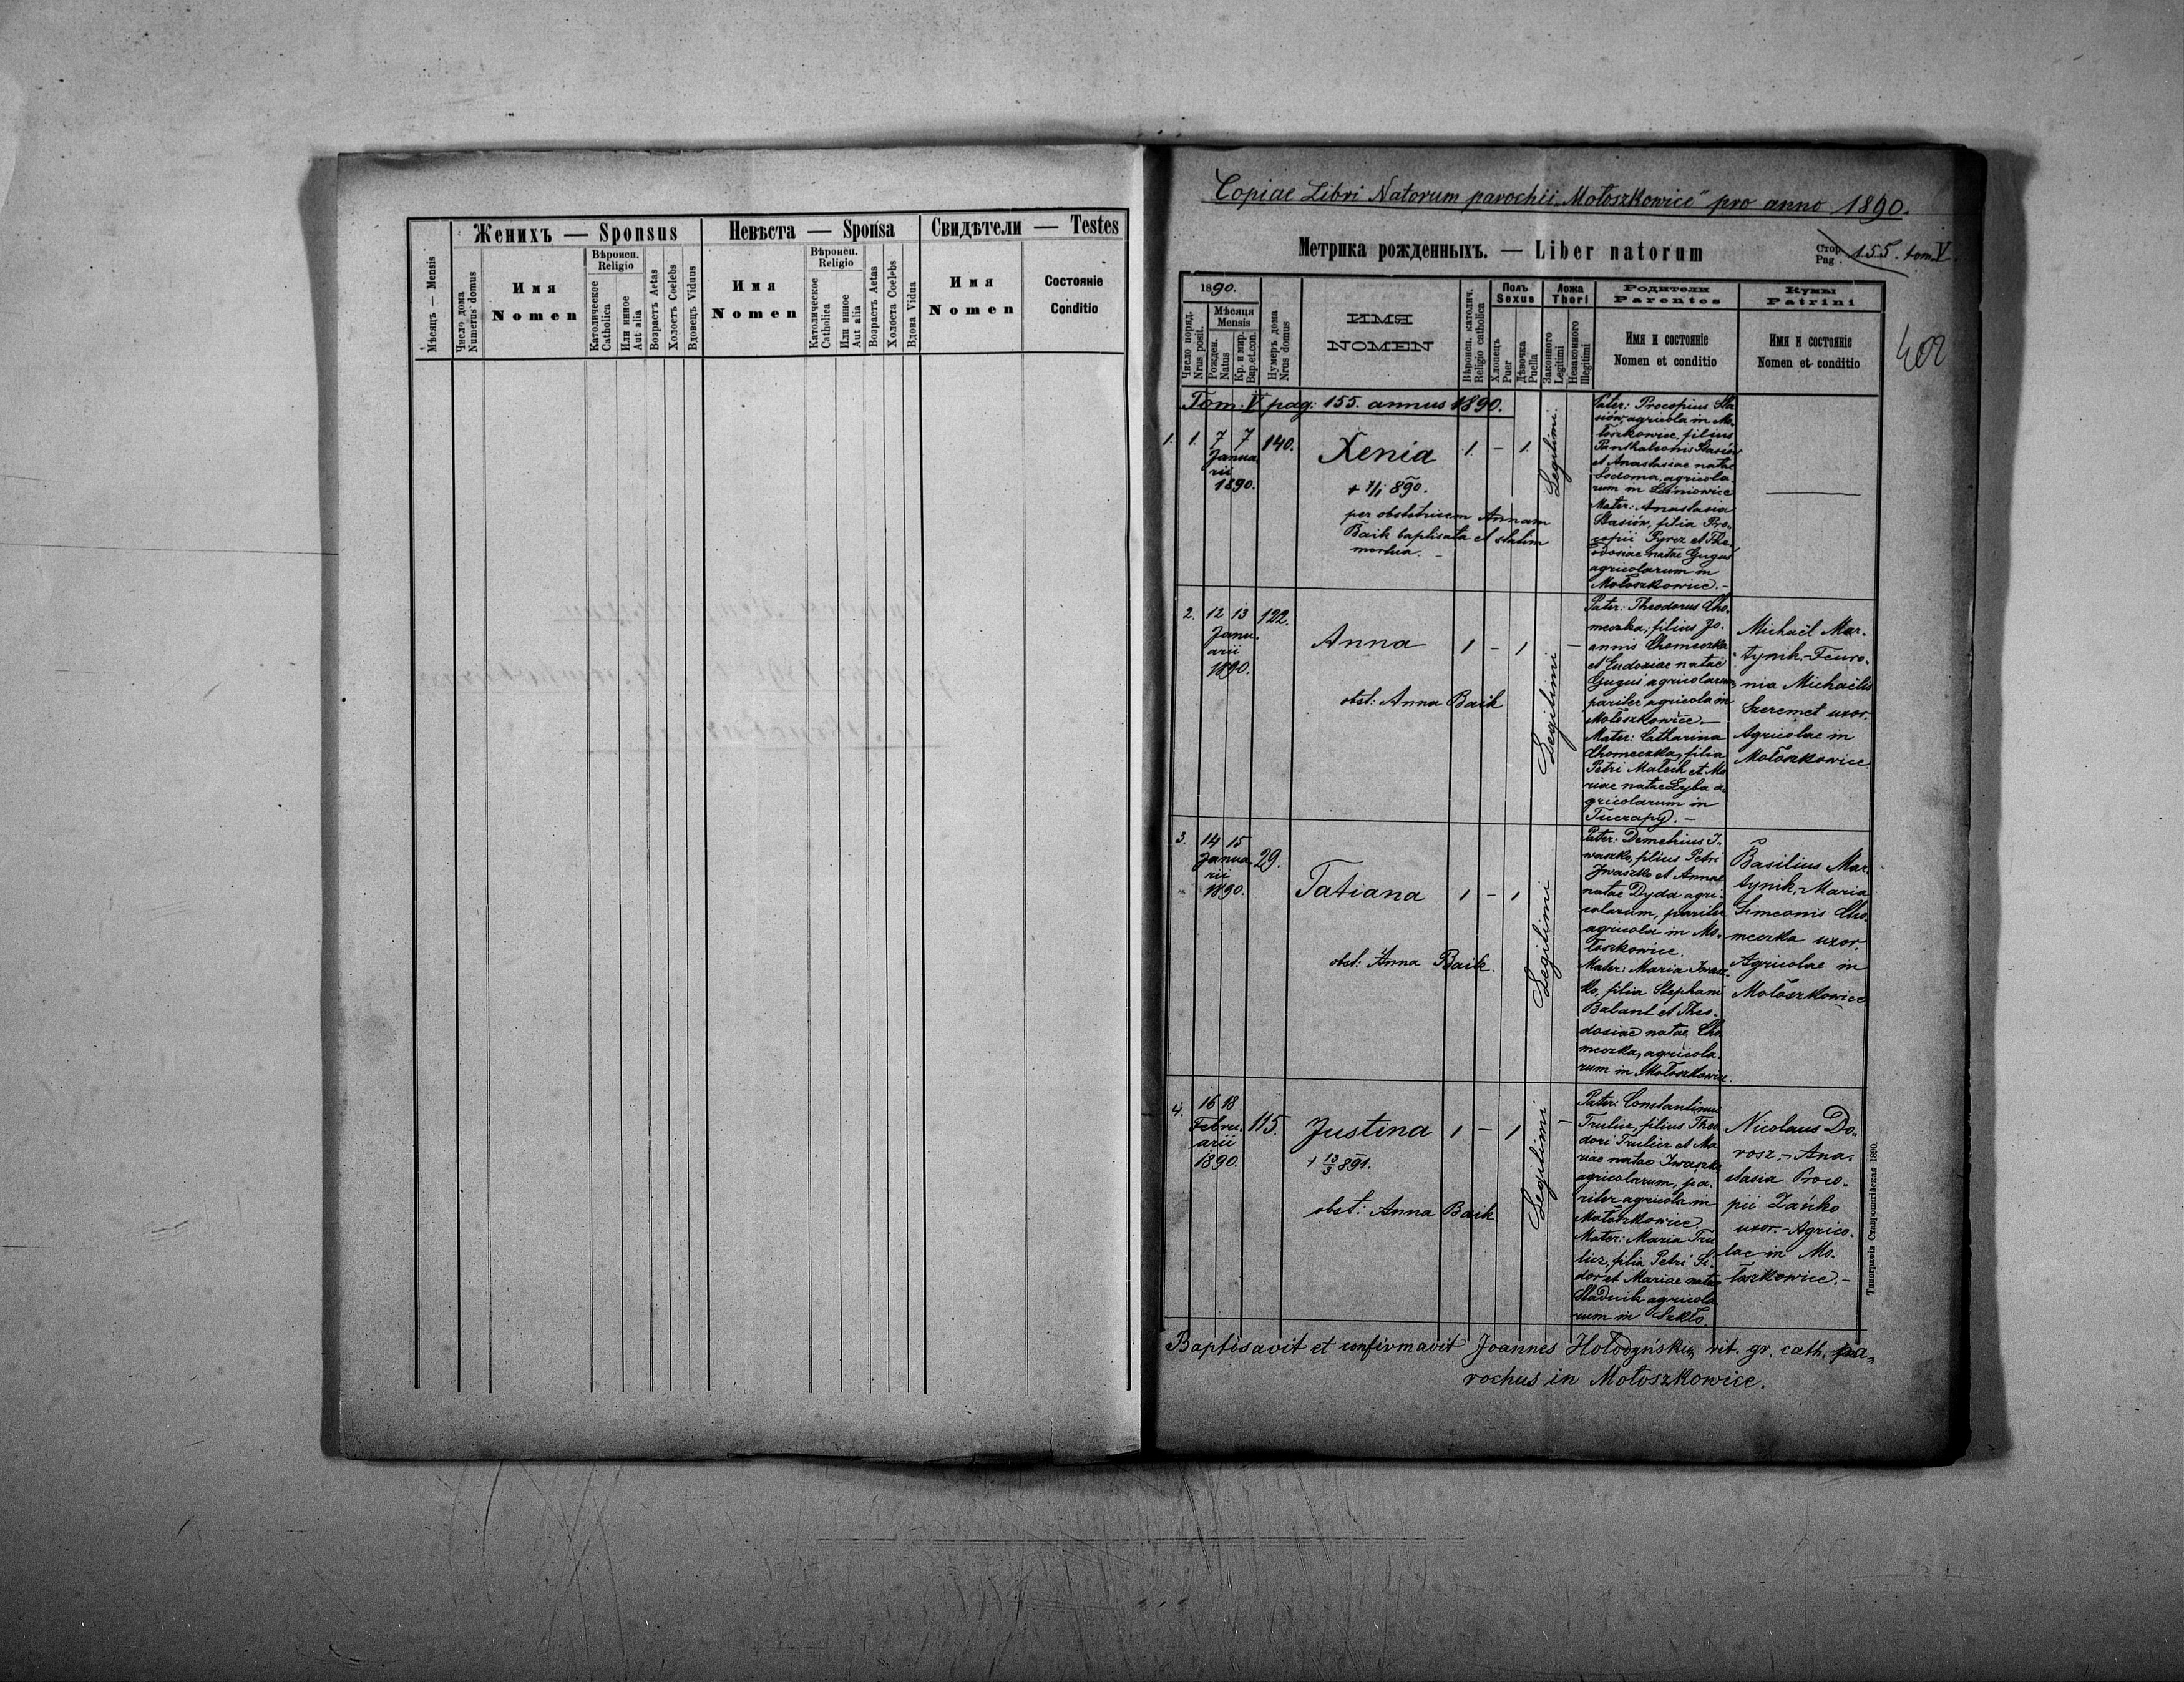 Женихъ — Sponsus
Невѣста — Sponsa
Свидѣтели — Testes
Мѣсяцъ — Mensis
Число дома
Numerus domus
Имя
Nomen
Вѣроисп.
Religio
Католическое
Catholica
Или инное
Aut alia
Возрастъ Aetas
Холостъ Coelebs
Вдовецъ Vidus
Имя
Nomen
Вѣроисп.
Religio
Католическое
Catholica
Или инное
Aut alia
Возрастъ Aetas
Холоста Coelebs
Вдова Vidua
Имя
Nomen
Состояніе
Conditio
Copiae Libri Natorum parochii „Mołoszkowice" pro anno 1890.
Метрика рожденныхъ. — Liber natorum
Стор
Pag. 155. tom. V.
402
1890.
Число поряд.
Nrus posit.
Мѣсяця
Mensis
Рожден.
Natus
Кр. и мир.
Bap.et.con.
Нумеръ дома
Nrus domus
ИМЯ
NOMEN
Вѣроисп. католич.
Religio catholica
Полъ
Sexus
Хлопецъ
Puer
Дѣвочка
Puella
Ложа
Thori
Законного
Legitimi
Незаконного
Illegitimi
Родители
Parentes
Имя и состояніе
Nomen et conditio
Кумы
Patrini
Имя и состояніе
Nomen et conditio
Tom: V pag: 155. annus 1890.
1. 1. 7 7 140.
Janua
rii
1890.
Xenia 1. - 1. Legitimi.
+ 7/1 890.
per obstetricem Annam
Baik baptisata et statim
mortua. -
Pater: Procopius Sta
siów, agricola in Mo
łoszkowice, filius
Panthaleonis Stasiów
et Anastasiae natae
Sodoma, agricola.
rum in
Mater: Anastasia
Stasiów, filia Pro.
copii Pyrez et The
odosiae natae Guguś
agricolarum in
Mołoszkowice. -
2. 12 13 122.
Janu.
arii
1890.
Anna 1 - 1 Legitimi -
obst: Anna Baik
Pater: Theodorus Cho.
meczka, filius Jo.
annis Chomeczka
et Eudoxiae natae
Guguś agricolarum,
pariter agricola in
Mołoszkowice. -
Mater: Catharina
Chomeczka, filia
Petri Małech et Ma
riae natae Łyba a.
gricolarum in
Tuczapy. -
Michaël Mar.
tynik. - Feuro.
nia Michaëlis
Szeremet uxor.
Agricolae in
Mołoszkowice.
3. 14 15 29.
Janua.
rii
1890.
Tatiana 1 - 1 Legitimi
obst: Anna Baik.
Pater: Demetrius I.
waszko, filius Petri
Iwaszko et Annae
natae Dyda agri.
colarum, pariter
agricola in Mo.
łoszkowice.
Mater: Maria Iwasz.
ko, filia Stephani
Balant et Theo.
dosiae natae Cho
meczka, agricola.
rum in Mołoszkowice.
Basilius Mar
tynik, - Maria
Simeonis Cho.
meczka uxor.
Agricolae in
Mołoszkowice.
4. 16 18 115.
Febru.
arii
1890.
Justina 1 - 1 Legitimi -
+ 13/3 891.
obst: Anna Baik
Pater: Constantinus
Trulicz, filius Theo
dori Trulicz et Ma
riae natae Iwaszko
agricolarum, pa.
riter agricola in
Mołoszkowice.
Mater: Maria Tru
licz, filia Petri Si.
dor et Mariae natae
Stadnik agricola
rum in Szkło.
Nicolaus Do.
rosz. - Ana.
stasia Proco.
pii Zańko
uxor. - Agrico.
lae in Mo.
łoszkowice. -
Типографія Ставропигійская 1890.
Baptisavit et confirmavit Joannes Hołodyński, rit. gr. cath. pa„
rochus in Mołoszkowice.